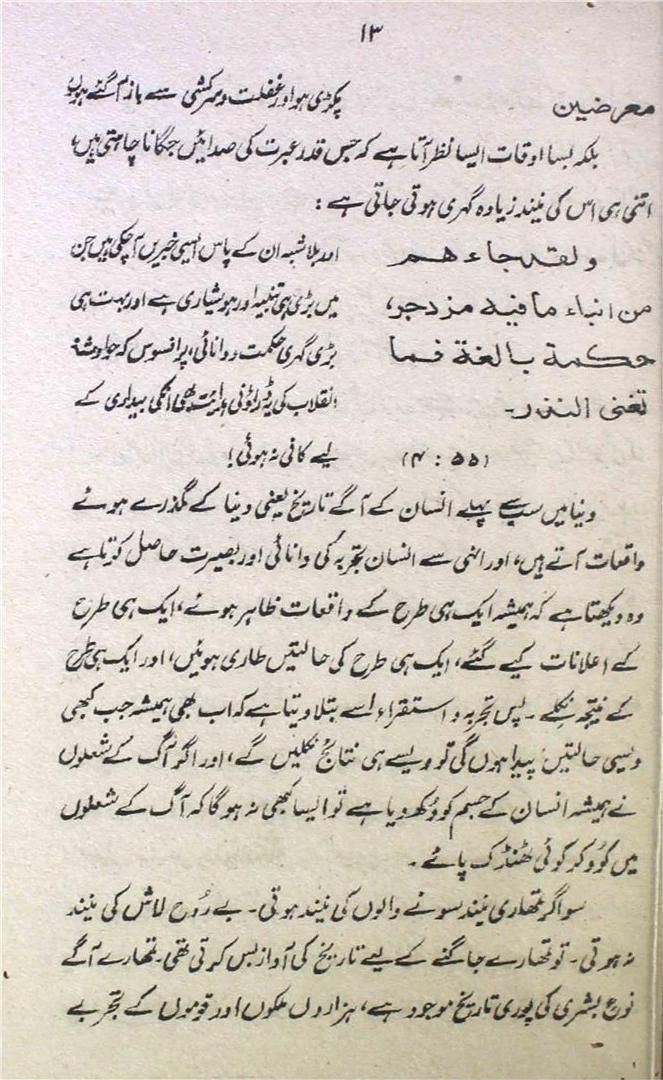 ۱۳
معرضین پکڑی ہو اور غفلت و سرکشی سے باز آ گئے ہوں
بلکہ بسا اوقات ایسا نظر آتا ہے کہ جس قدر عبرت کی صدائیں جگانا چاہتی ہیں،
اتنی ہی اس کی نیند زیادہ گہری ہوتی جاتی ہے :
ولقد جاء ھم اور بلاشبہ ان کے پاس ایسی خبریں آ چکی ہیں جن
من انباء ما فیہ مزدجر، میں بڑی ہی تنبیہ اور ہوشیاری ہے اور بہت ہی
حکمة بالغة فما بڑی گہری حکمت و دانائی، پر افسوس کہ حوادث و
تغنی النذر۔ انقلاب کی یہ ڈراؤنی بھی انکی بیداری کے
(۵۵ : ۴) لیے کافی نہ ہوئی!
دنیا میں سب سے پہلے انسان کے آگے تاریخ یعنی دنیا کے گذرے ہوئے
واقعات آتے ہیں، اور انہی سے انسان تجربہ کی دانائی اور بصیرت حاصل کرتا ہے
وہ دیکھتا ہے کہ ہمیشہ ایک ہی طرح کے واقعات ظاہر ہوئے، ایک ہی طرح
کے اعلانات کیے گئے، ایک ہی طرح کی حالتیں طاری ہوئیں، اور ایک ہی طرح
کے نتیجہ نکلے۔ پس تجربہ و استقراء اسے بتلا دیتا ہے کہ اب بھی ہمیشہ جب کبھی
ویسی حالتیں پیدا ہوں گی تو ویسے ہی نتائج نکلیں گے، اور اگر آگ کے شعلوں
نے ہمیشہ انسان کے جسم کو دُکھ دیا ہے تو ایسا کبھی نہ ہوگا کہ آگ کے شعلوں
میں کُود کر کوئی ٹھنڈک پائے۔
سو اگر تمھاری نیند سونے والوں کی نیند ہوتی۔ بے رُوح لاش کی نیند
نہ ہوتی۔ تو تمھارے جاگنے کے لیے تاریخ کی آواز بس کرتی تھی۔ تمھارے آگے
نوعِ بشری کی پوری تاریخ موجود ہے، ہزاروں ملکوں اور قوموں کے تجربے